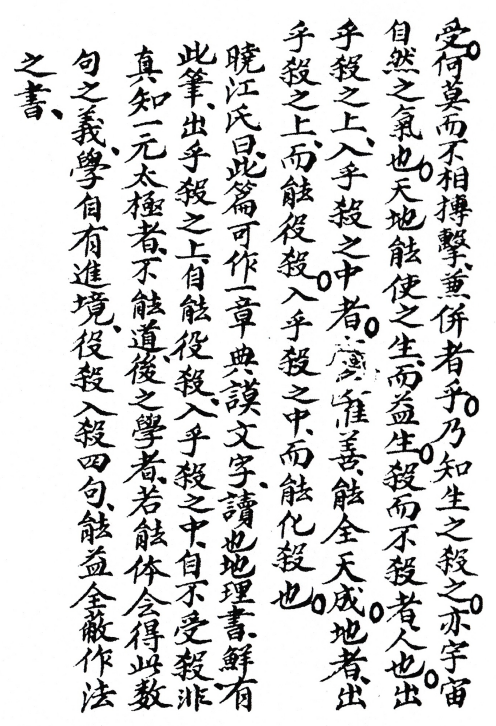 受。何莫而不相摶擊、兼併者乎。乃知生之殺之。亦宇宙
自然之氣也。天地能使之生、而益生。殺而不殺者、人也。出
乎殺之上、入乎殺之中者。惟善、能全天成。地者、出
乎殺之上、而能役殺。入乎殺之中、而能化殺也。
曉江氏曰、此篇可作一章典謨文字、讀也地理書、鮮、有
此筆、出乎殺之上、自能役殺、入乎殺之中、自不受殺、非
真知一元太極者、不能道、後之學者、若能体会得此数
句之義、學自有進境、役殺入殺四句、能益全蔽作法
之書、